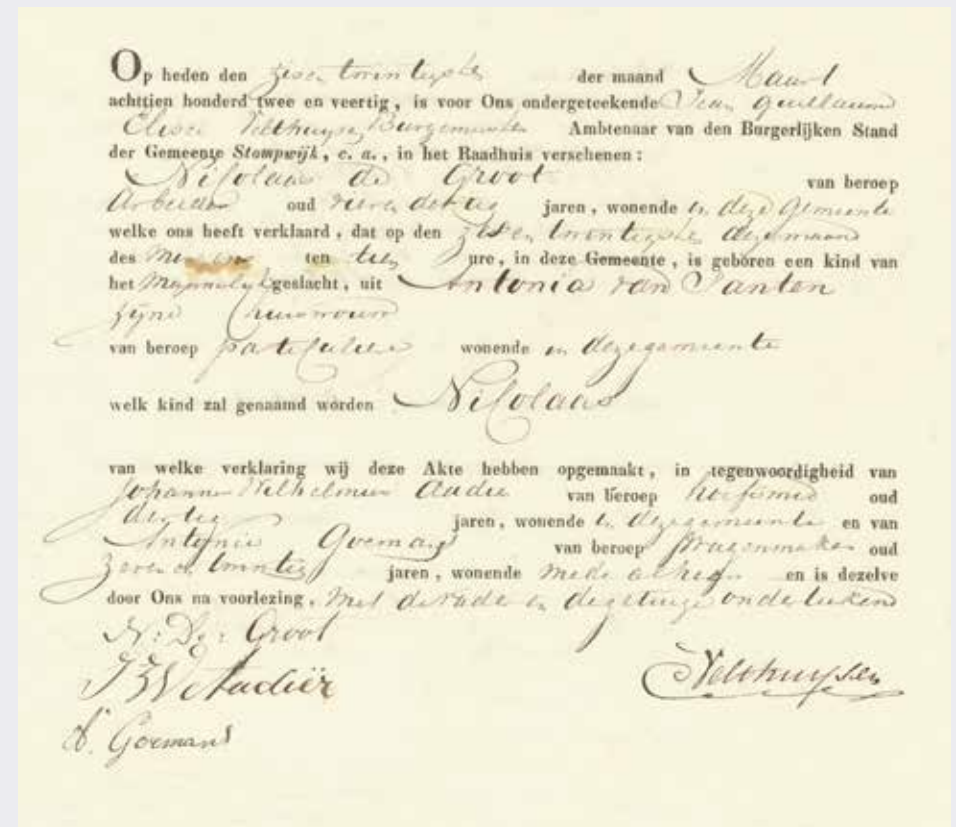 Op heden den zes en twintigste der maand Maart
achttien honderd twee en veertig, is voor Ons ondergeteekende Jean Guillaume
Elisa Velthuysen Burgemeester Ambtenaar van den Burgerlijken Stand
der Gemeente Stompwijk, c. a., in het Raadhuis verschenen:
Nicolaas de Groot van beroep
Arbeider oud vier en dertig jaren, wonende in deze Gemeente
welke ons heeft verklaard, dat op den zes en twintigste dezer maand
des ten tien ure, in deze Gemeente, is geboren een kind van
het Mannelijk geslacht, uit Antonia van Santen
zijne huisvrouw
van beroep wonende in deze gemeente
welk kind zal genaamd worden Nicolaas
van welke verklaring wij deze Akte hebben opgemaakt, in tegenwoordigheid van
Johannes Wilhelmus van beroep hoefsmid oud
dertig jaren, wonende in deze gemeente en van
Antonie Goemans van beroep Wagenmaker oud
zeven en twintig jaren, wonende mede alhier en is dezelve
door Ons na voorlezing, met de vader en de getuige onderteekend
N: De: Groot
Velthuysen
A. Goemans